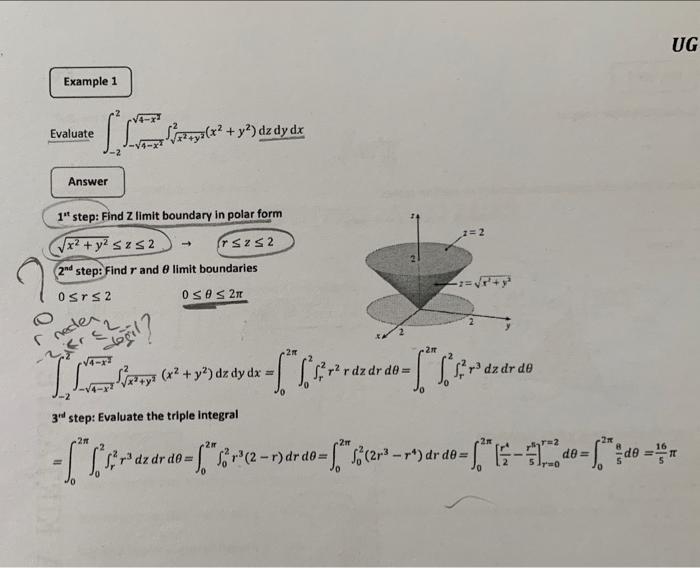 UG
Example 1
Evaluate ∫_{-2}^{2} ∫_{-√(4-x²)}^{√(4-x²)} ∫_{√(x²+y²)}^{2} (x² + y²) dz dy dx
Answer
1st step: Find Z limit boundary in polar form
√(x² + y²) ≤ z ≤ 2 → r ≤ z ≤ 2
2nd step: Find r and θ limit boundaries
0 ≤ r ≤ 2 0 ≤ θ ≤ 2π
? r neden
-2 ≤ r ≤ 2
değil?
z
z = 2
2
z = √(x² + y²)
x 2 2 y
∫_{-2}^{2} ∫_{-√(4-x²)}^{√(4-x²)} ∫_{√(x²+y²)}^{2} (x² + y²) dz dy dx = ∫_0^{2π} ∫_0^2 ∫_r^2 r² r dz dr dθ = ∫_0^{2π} ∫_0^2 ∫_r^2 r³ dz dr dθ
3rd step: Evaluate the triple integral
= ∫_0^{2π} ∫_0^2 ∫_r^2 r³ dz dr dθ = ∫_0^{2π} ∫_0^2 r³(2 − r) dr dθ = ∫_0^{2π} ∫_0^2 (2r³ − r⁴) dr dθ = ∫_0^{2π} [r⁴/2 − r⁵/5]_{r=0}^{r=2} dθ = ∫_0^{2π} 8/5 dθ = 16/5 π